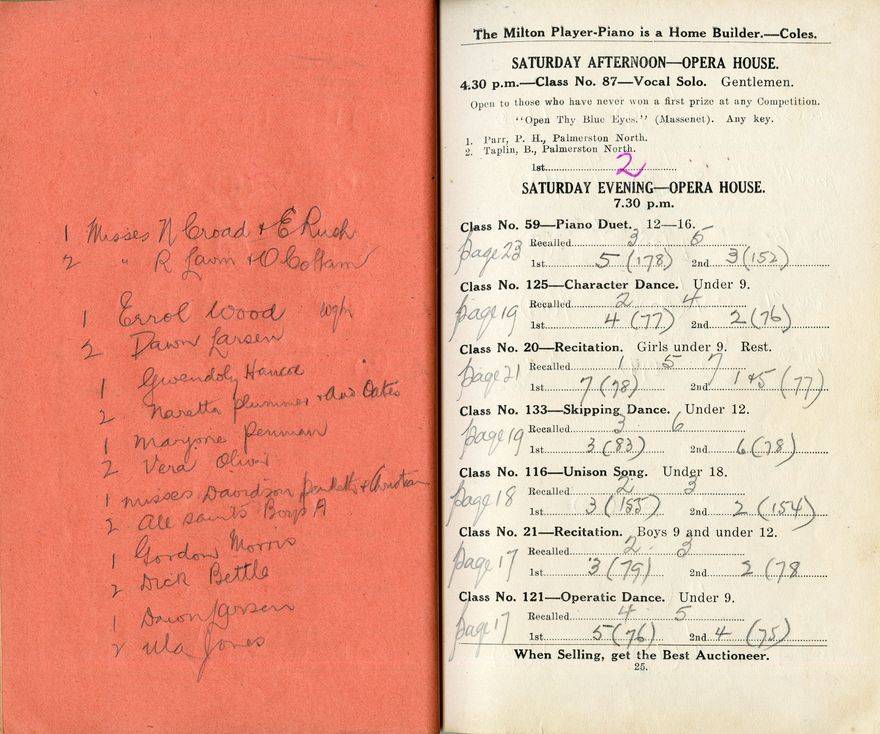 1 Misses N Croad & E Rush
2 " R Lawn & O Cottam
1 Errol Wood Wg/n
2 Dawn Larsen
1 Gwendoly
2 Naretta Plummer & Oates
1 Marjorie Penman
2 Vera Oliver
1 Misses Davidson & Christian
2 All Saints Boys A
1 Gordon Morris
2 Dick Bettle
1 Dawn Larsen
2 Ula Jones
The Milton Player-Piano is a Home Builder.—Coles.
SATURDAY AFTERNOON—OPERA HOUSE.
4.30 p.m.—Class No. 87—Vocal Solo. Gentlemen.
Open to those who have never won a first prize at any Competition.
"Open Thy Blue Eyes." (Massenet). Any key.
1. Parr, P. H., Palmerston North.
2. Taplin, B., Palmerston North.
1st 2
SATURDAY EVENING—OPERA HOUSE.
7.30 p.m.
Class No. 59—Piano Duet. 12—16.
page 23 Recalled 3 5
1st 5 (178) 2nd 3 (152)
Class No. 125—Character Dance. Under 9.
page 19 Recalled 2 4
1st 4 (77) 2nd 2 (76)
Class No. 20—Recitation. Girls under 9. Rest.
page 21 Recalled 1 5 7
1st 7 (78) 2nd 1 & 5 (77)
Class No. 133—Skipping Dance. Under 12.
page 19 Recalled 3 6
1st 3 (83) 2nd 6 (78)
Class No. 116—Unison Song. Under 18.
page 18 Recalled 2 3
1st 3 (155) 2nd 2 (154)
Class No. 21—Recitation. Boys 9 and under 12.
page 17 Recalled 2 3
1st 3 (79) 2nd 2 (78
Class No. 121—Operatic Dance. Under 9.
page 17 Recalled 4 5
1st 5 (76) 2nd 4 (75)
When Selling, get the Best Auctioneer.
25.